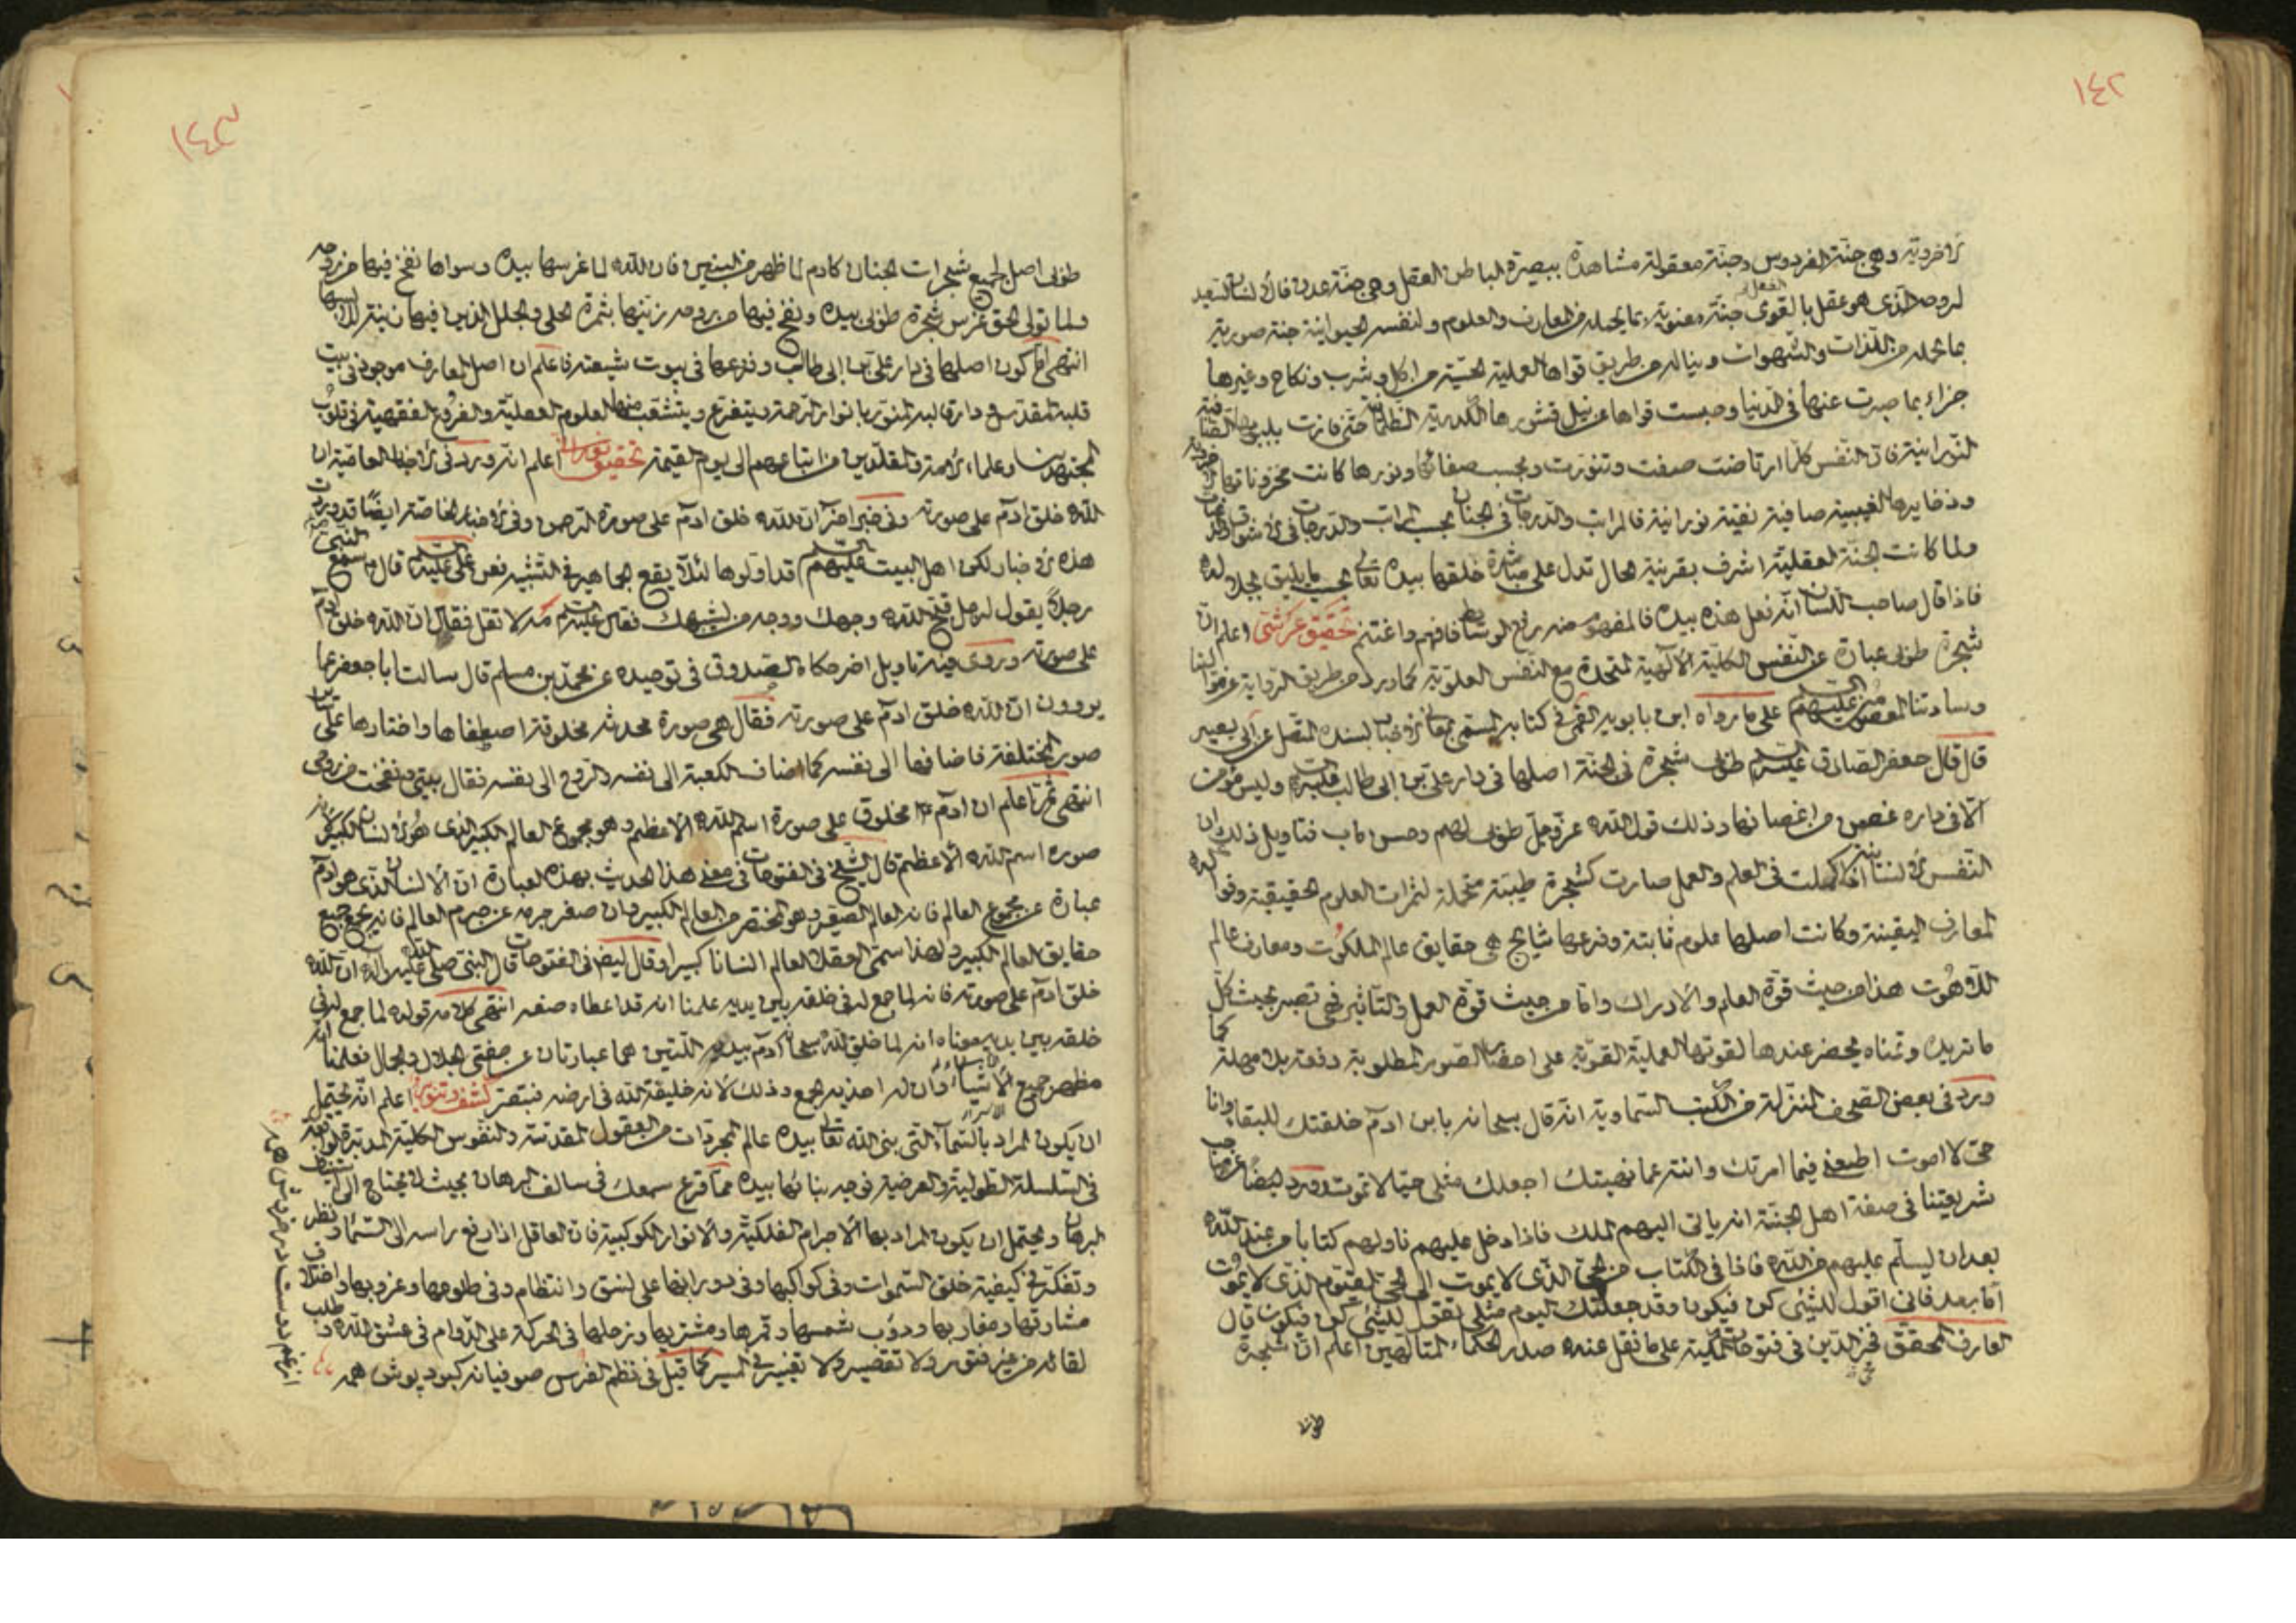 ١٤٢
الاخروية وهى جنة الفردوس وجنة معقولة مشاهدة ببصيرة الباطن العقل وهى جنة عدن فان الانسان السعيد
لروحه الذى هو عقل بالقوى جنة معنوية بما يحمله من المعارف والعلوم ولنفسه الحيوانية جنة صورية
بما تحمله من اللذات والشهوات ويناله من طريق قواها العملية الحسية من اكل وشرب ونكاح وغيرها
جزاء بما صبرت عنها فى الدنيا وحبست قواها عن نيل قشورها الكدرية الظلمانية حتى فازت بلبوبها الصافية
النورانية فان النفس كلما ارتاضت صفت وتنورت وبحسب صفائها ونورها كانت مخزوناتها
وذخايرها الغيبية صافية نقية نورانية فالمراتب والدرجات فى الجنان بحسب المراتب والدرجات فى
ولما كانت الجنة العقلية اشرف بقرينة الحال تدل على مباشرة خلقها بيده تعالى بحسب ما يليق بجلاله
فاذا قال صاحب اللسان انه فعل هذه بيده فالمفهوم منه رفع الوسائط فافهم واغتنم تحقيق عرشى اعلم ان
شجرة طوبى عبارة عن النفس الكلية الالهية المتحدة مع النفس العلوية كما ورد من طريق الرواية عن موالينا
وساداتنا المعصومين عليهم السلام على ما رواه ابن بابويه القمى فى كتابه المسمى بمعانى الاخبار بسنده المتصل عن ابى بصير
قال قال جعفر الصادق عليه السلام طوبى شجرة فى الجنة اصلها فى دار على بن ابى طالب عليه السلام وليس مؤمن
الا فى داره غصن من اغصانها وذلك قول الله عز وجل طوبى لهم وحسن ماب فتاويل ذلك ان
النفس الانسانية اذا كملت فى العلم والعمل صارت كشجرة طيبة متحملة لثمرات العلوم الحقيقية وفواكه
المعارف اليقينية وكانت اصلها علوم ثابتة وفرعها نتايج هى حقايق عالم الملكوت ومعارف عالم
اللاهوت هذا من حيث قوة العلم والادراك واما من حيث قوة العمل والتاثير فهى تصير بحيث كل
ما تريده وتتمناه يحضر عندها لقوتها العملية القوية على احضار الصور المطلوبة دفعة بلا مهلة كما
ورد فى بعض الصحف المنزلة من الكتب السماوية انه قال سبحانه يا بن ادم خلقتك للبقاء وانا
حى لا اموت اطعنى فيما امرتك وانته عما نهيتك اجعلك مثلى حيا لا تموت وورد ايضا عن صاحب
شريعتنا فى صفة اهل الجنة انه ياتى اليهم الملك فاذا دخل عليهم ناولهم كتابا من عند الله
بعد ان يسلم عليهم من الله فاذا فى الكتاب من الحى الذى لا يموت الى الحى القيوم الذى لا يموت
اما بعد فانى اقول للشئ كن فيكون وقد جعلتك اليوم مثلى تقول للشئ كن فيكون قال
العارف المحقق فخر الدين فى فتوحات المكية على ما نقل عنه صدر الحكماء المتالهين اعلم ان شجرة
١٤٣
طوبى اصل لجميع شجرات الجنان كادم لما ظهر من البنين فان الله لما غرسها بيده وسواها نفخ فيها من روحه
ولما تولى الحق غرس شجرة طوبى بيده ونفخ فيها من روحه زينها بثمرة الحلى والحلل الذين فيهما زينة للابسهما
انتهى اما كون اصلها فى دار على بن ابى طالب وفرعها فى بيوت شيعته فاعلم ان اصل المعارف موجود فى بيت
قلبه المقدس و دار قالبه المنور بانوار الرحمة ويتفرع ويتشعب منها العلوم العقلية والفروع الفقهية فى قلوب
المجتهدين وعلماء الامة والمقلدين من اتباعهم الى يوم القيمة تحقيق اعلم انه ورد فى الاخبار العامية ان
الله خلق ادم على صورته وفى خبر اخر ان الله خلق ادم على صورة الرحمن وفى الاخبار الخاصة ايضا قد وردت
هذه الاخبار لكن اهل البيت عليهم السلام قد اولوها لئلا يقع الجماهير فى التشبيه فعن على عليه السلام قال سمع النبى
رجلا يقول لرجل قبح الله وجهك ووجه من يشبهك فقال عليه السلام مه لا تقل فقال ان الله خلق ادم
على صورته وروى فيه تاويل اخر حكاه الصدوق فى توحيده عن محمد بن مسلم قال سالت ابا جعفر عما
يروون ان الله خلق ادم على صورته فقال هى صورة محدثة مخلوقة اصطفاها واختارها على سائر
صور المختلفة فاضافها الى نفسه كما اضاف الكعبة الى نفسه والروح الى نفسه فقال بيتى ونفخت من روحى
انتهى ثم اعلم ان ادم مخلوق على صورة اسم الله الاعظم وهو مجموع العالم الكبير الذى هو الانسان الكبير لانه
صورة اسم الله الاعظم قال الشيخ فى الفتوحات فى معنى هذا الحديث بهذه العبارة ان الانسان الذى هو ادم
عبارة عن مجموع العالم فانه العالم الصغير وهو المختصر من العالم الكبير وان صغر جرمه عن جرم العالم فانه يجمع جميع
حقايق العالم الكبير ولهذا سمى العقلاء العالم انسانا كبيرا وقال ايضا فى الفتوحات قال النبى صلى الله عليه وآله ان الله
خلق ادم على صورته فانه لما جمع له فى خلقه بين يديه علمنا انه قد اعطاه صفة انتهى كلامه قوله لما جمع له فى
خلقه بين يديه معناه انه لما خلق الله سبحانه ادم بيديه اللتين هما عبارتان عن صفتى الجلال والجمال فعلمنا انه
مظهر جميع الاسماء وان له احدية الجمع وذلك لانه خليفة الله فى ارضه فتبصر كشف وتنوير اعلم انه يحتمل
ان يكون المراد بالسماء التى بنى الله تعالى بيده عالم المجردات من العقول المقدسة والنفوس الكلية المدبرة
فى السلسلة الطولية والعرضية فوجه بنائها بيده مما قرع سمعك فى سالف البرهان بحيث لا يحتاج الى
البرهان ويحتمل ان يكون المراد بها الاجرام الفلكية والانوار الكوكبية فان العاقل اذا رفع راسه الى السماء ونظر
وتفكر فى كيفية خلق السموات وفى كواكبها وفى دورانها على نسق وانتظام وفى طلوعها وغروبها واختلاف
مشارقها ومغاربها ودؤب شمسها وقمرها ومشتريها وزحلها فى الحركة على الدوام فى عشق الله وطلب
لقائه من غير فتور ولا تقصير ولا تغيير فى المسير كما قيل فى نظم الفرس صوفيانه كبود پوش همه
از غم دوست در خروش همه